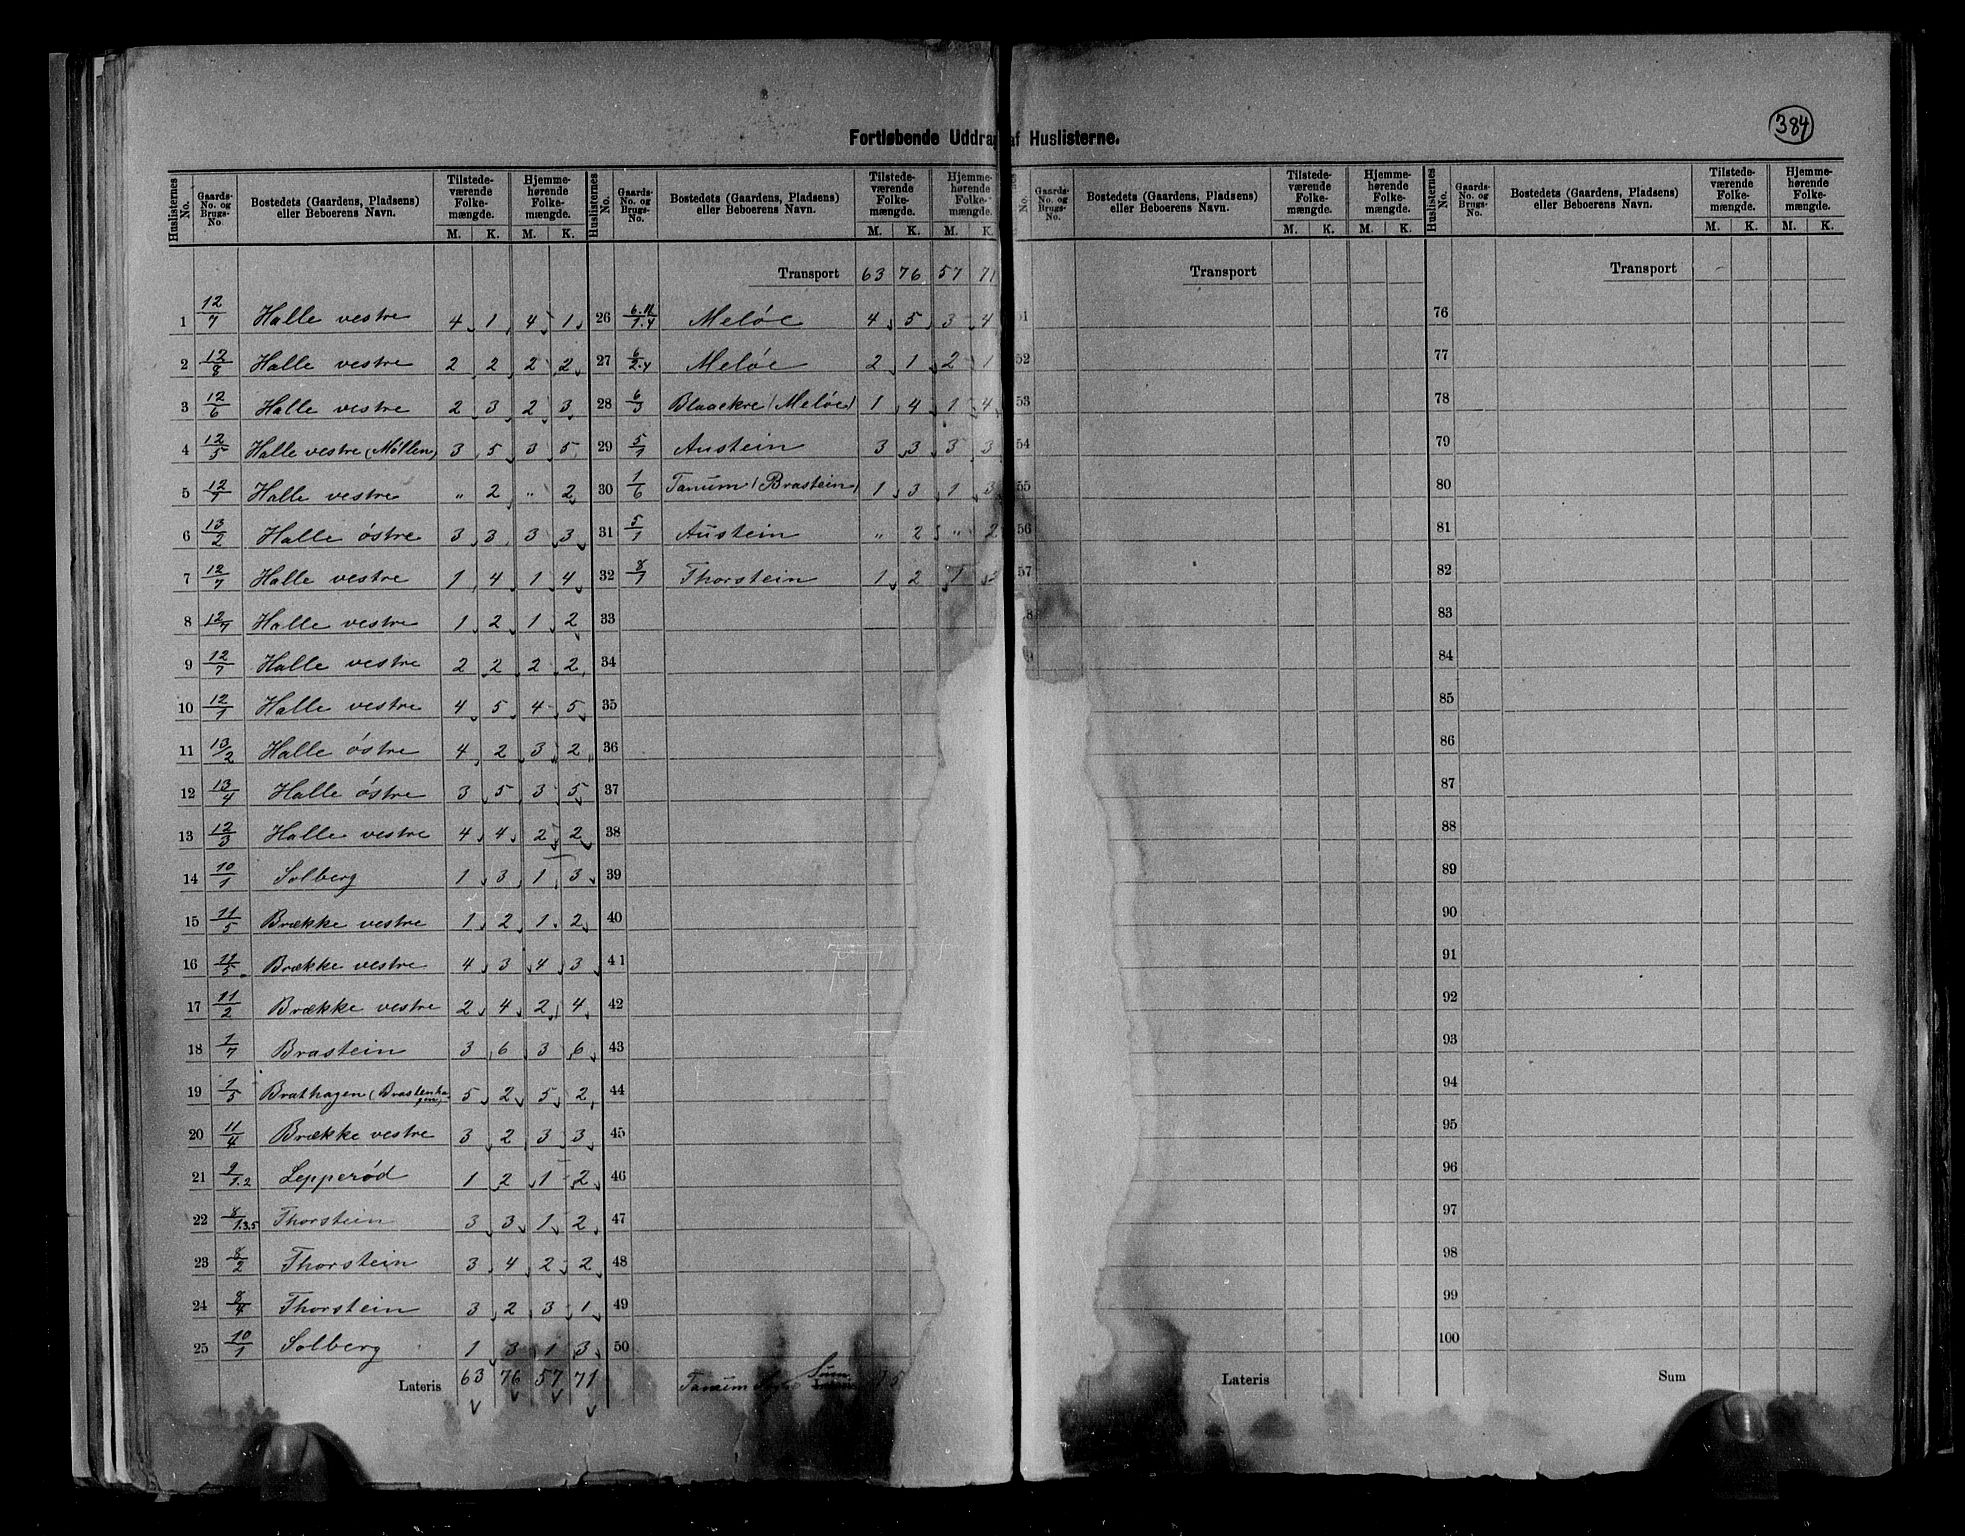 384
Fortløbende Uddrag af Huslisterne.
Huslisternes No. | Gaards-No. og Brugs-No. | Bostedets (Gaardens, Pladsens) eller Beboerens Navn. | Tilstede-værende Folke-mængde. M. K. | Hjemme-hørende Folke-mængde. M. K.
1 12/7 Halle vestre 4 1 4 1
2 12/8 Halle vestre 2 2 2 2
3 12/6 Halle vestre 2 3 2 3
4 12/5 Halle vestre (Møllen) 3 5 3 5
5 12/7 Halle vestre " 2 " 2
6 13/2 Halle østre 3 3 3 3
7 12/7 Halle vestre 1 4 1 4
8 12/7 Halle vestre 1 2 1 2
9 12/7 Halle vestre 2 2 2 2
10 12/1 Halle vestre 4 5 4 5
11 13/2 Halle østre 4 2 3 2
12 13/4 Halle østre 3 5 3 5
13 12/3 Halle vestre 4 4 2 2
14 10/1 Solberg 1 3 1 3
15 11/5 Brække vestre 1 2 1 2
16 11/5 Brække vestre 4 3 4 3
17 11/2 Brække vestre 2 4 2 4
18 1/7 Brastein 3 6 3 6
19 1/5 Brathagen (Brastenhagen) 5 2 5 2
20 11/4 Brække vestre 3 2 3 3
21 9/1.2 Lepperød 1 2 1 2
22 8/1.3.5 Thorstein 3 3 1 2
23 8/2 Thorstein 3 4 2 2
24 8/4 Thorstein 3 2 3 1
25 10/1 Solberg 1 3 1 3
Lateris 63 76 57 71
Huslisternes No. | Gaards-No. og Brugs-No. | Bostedets (Gaardens, Pladsens) eller Beboerens Navn. | Tilstede-værende Folke-mængde. M. K. | Hjemme-hørende Folke-mængde. M. K.
Transport 63 76 57 71
26 6.11/1.4 Meløe 4 5 3 4
27 6/2.4 Meløe 2 1 2 1
28 6/3 Blaaekre (Meløe) 1 4 1 4
29 5/1 Austein 3 3 3 3
30 1/6 Tanum (Brastein) 1 3 1 3
31 5/1 Austein " 2 " 2
32 8/1 Thorstein 1 2 1
33
34
35
36
37
38
39
40
41
42
43
44
45
46
47
48
49
50
Tanum Sum 75
No. | Gaards-No. og Brugs-No. | Bostedets (Gaardens, Pladsens) eller Beboerens Navn. | Tilstede-værende Folke-mængde. M. K. | Hjemme-hørende Folke-mængde. M. K.
Transport
51
52
53
54
55
56
57
8
9
Lateris
Huslisternes No. | Gaards-No. og Brugs-No. | Bostedets (Gaardens, Pladsens) eller Beboerens Navn. | Tilstede-værende Folke-mængde. M. K. | Hjemme-hørende Folke-mængde. M. K.
Transport
76
77
78
79
80
81
82
83
84
85
86
87
88
89
90
91
92
93
94
95
96
97
98
99
100
Sum